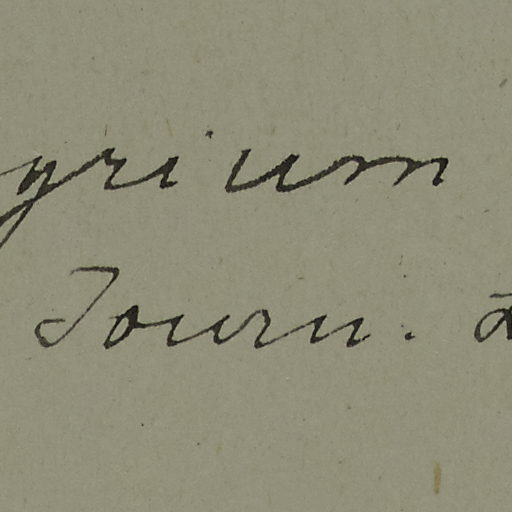 yrium
Tourn.